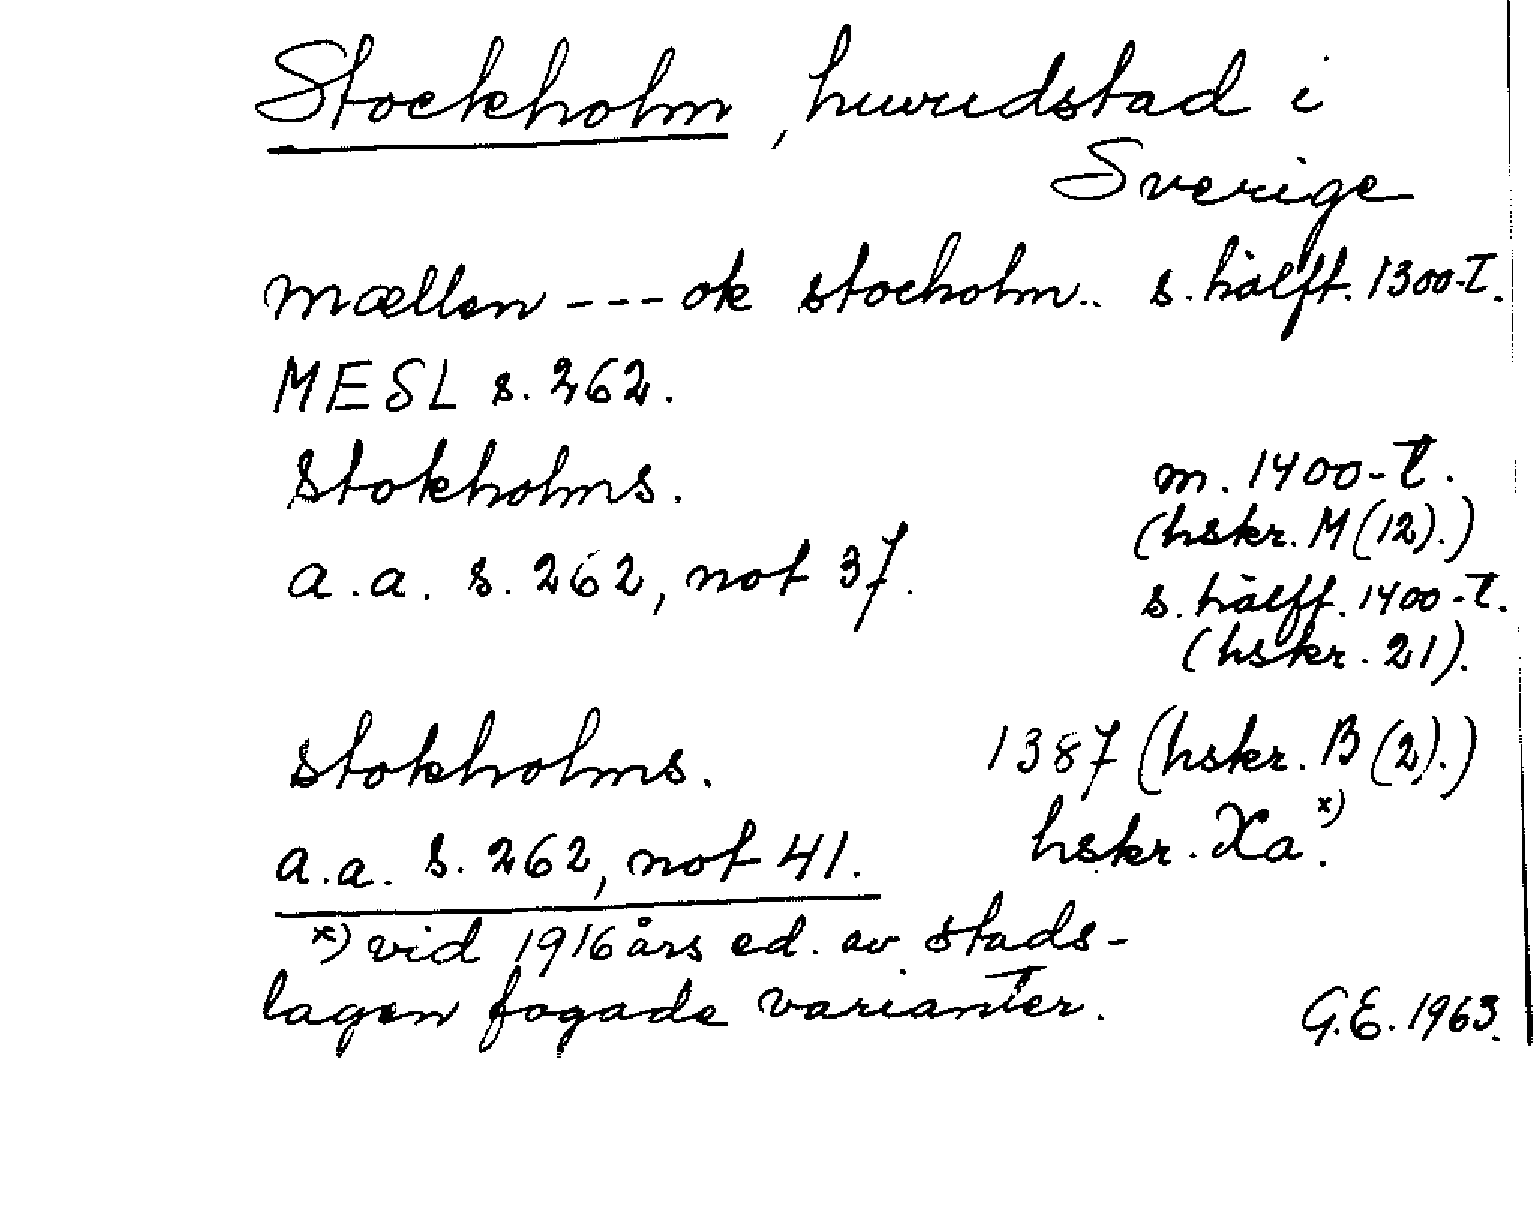 Stockholm, huvudstad i
Sverige
mællen --- ok stocholm.. s. hälft. 1300-t.
MESL s. 262.
Stokholms. m. 1400-t.
(hskr. M (12).)
a.a. s. 262, not 37. s. hälft. 1400-t.
(hskr. 21).
stokholms. 1387 (hskr. B (2).)
hskr. Xa.x)
a.a. s. 262, not 41.
x) vid 1916 års ed. av stads-
lagen fogade varianter. G.E. 1963.